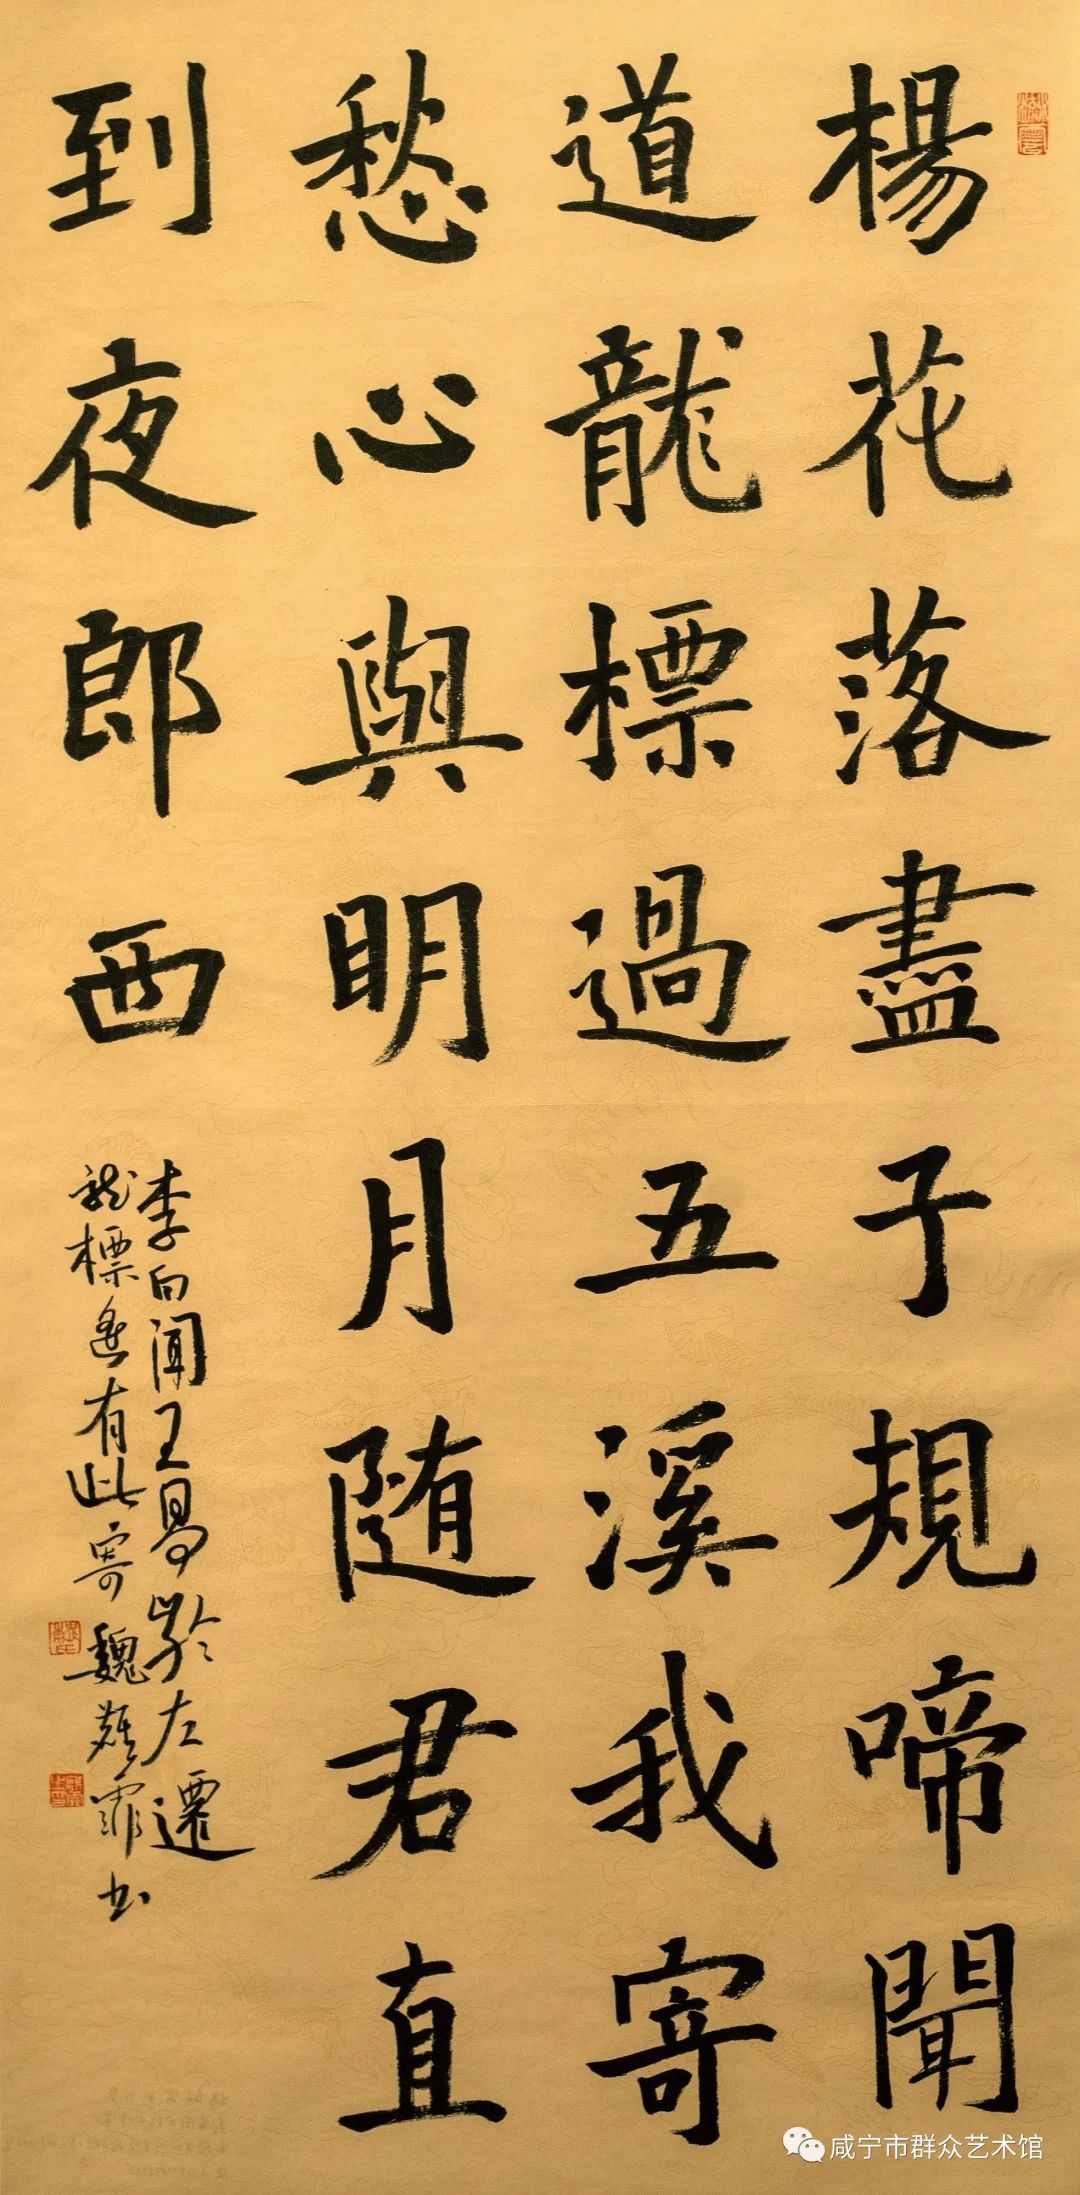 楊花落盡子規啼聞
道龍標過五溪我寄
愁心與明月随君直
到夜郎西
李白闻王昌龄左遷
龍標遥有此寄 魏霏书
咸宁市群众艺术馆